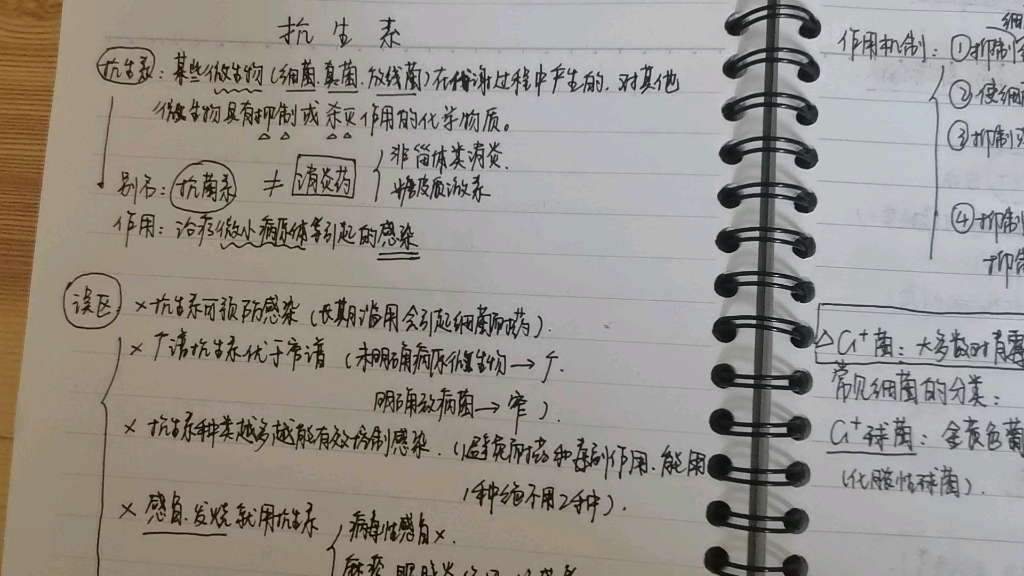 抗生素
抗生素：某些微生物（细菌.真菌.放线菌）在代谢过程中产生的.对其他
微生物具有抑制或杀灭作用的化学物质。
别名：抗菌素 ≠ 消炎药
非甾体类消炎.
糖皮质激素
作用：治疗微小病原体等引起的感染
误区
×抗生素可预防感染（长期滥用会引起细菌耐药）.
×广谱抗生素优于窄谱（未明确病原微生物→广.
明确致病菌→窄）
×抗生素种类越多越能有效控制感染.（避免耐药和毒副作用.能用
1种绝不用2种）.
×感冒.发烧就用抗生素
病毒性感冒×.
作用机制：①抑制
②使细
③抑制
④抑制
抑制
△G+菌：大多数对青霉
常见细菌的分类：
G+球菌：金黄色葡
（化脓性球菌）.